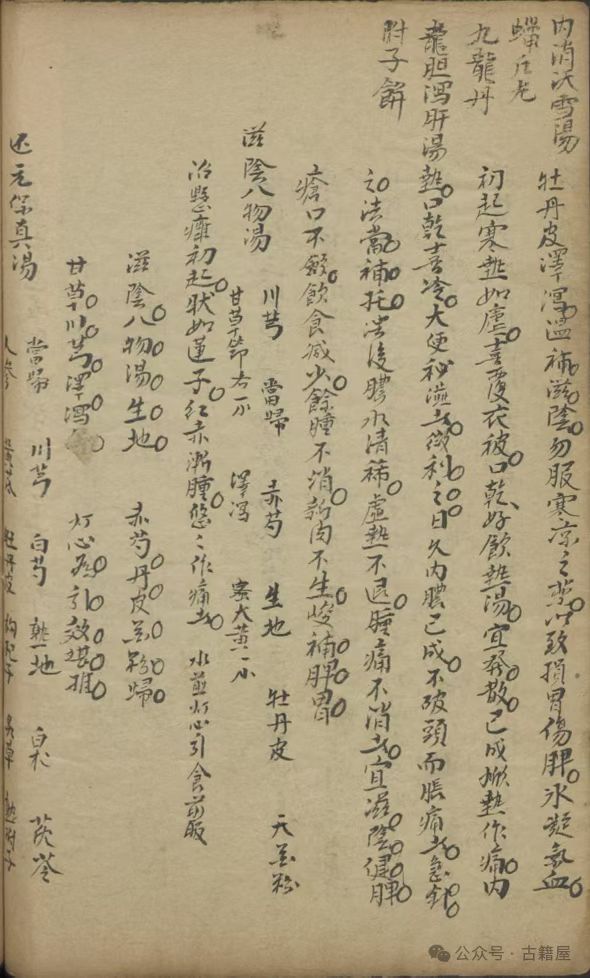 内消沃雪湯
蠟矾丸
九龍丹
龍胆瀉肝湯
肘子餅
牡丹皮澤瀉温補滋陰勿服寒凉之藥以致損胃傷脾氷凝氣血
初起寒熱如虐喜覆衣被口乾好飲熱湯宜發散已成掀熱作痛内
熱口乾喜冷大便秘澁者微利之日久内膿已成不破頭而脹痛者急針
之法當補托潰後膿水清稀虛熱不退腫痛不消者宜滋陰健脾
瘡口不斂飲食减少餘腫不消新肉不生峻補脾胃
滋陰八物湯 川芎 當歸 赤芍 生地 牡丹皮 天花粉
甘草節各一錢 澤瀉 大黄一錢
治懸癰初起狀如蓮子紅赤漸腫悠々作痛者 水煎灯心引食前服
滋陰八物湯生地 赤芍丹皮花粉歸
甘草川芎澤瀉 灯心為引效堪推
还元保真湯 當歸 川芎 白芍 熟地 白朮 茯苓
人參 黄芪 牡丹皮 枸杞子 甘草 熟附子
公众号·古籍屋